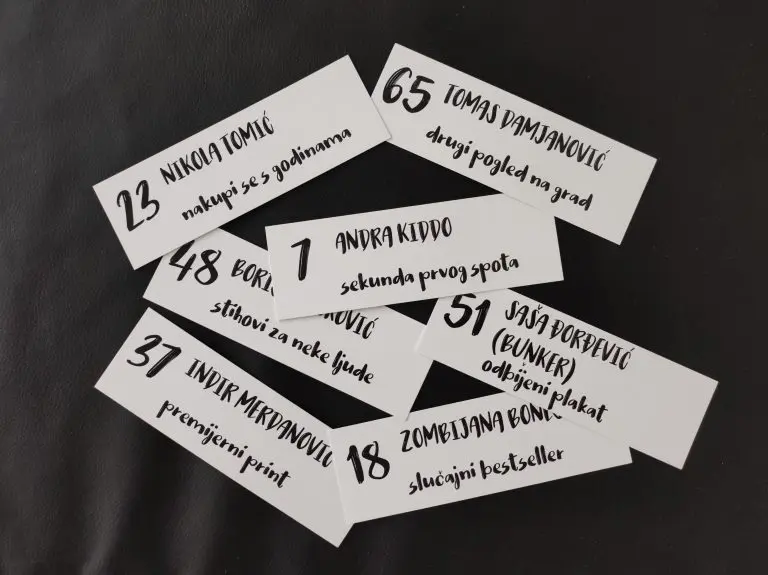 65 TOMAS DAMJANOVIĆ
drugi pogled na grad
23 NIKOLA TOMIĆ
nakupi se s godinama
1 ANDRA KIDDO
sekunda prvog spota
48
stihovi za neke ljude
51 SAŠA ĐORĐEVIĆ
(BUNKER)
odbijeni plakat
37 INDIR MERDANOVIĆ
premijerni print
18 ZOMBIJANA
slučajni bestseller